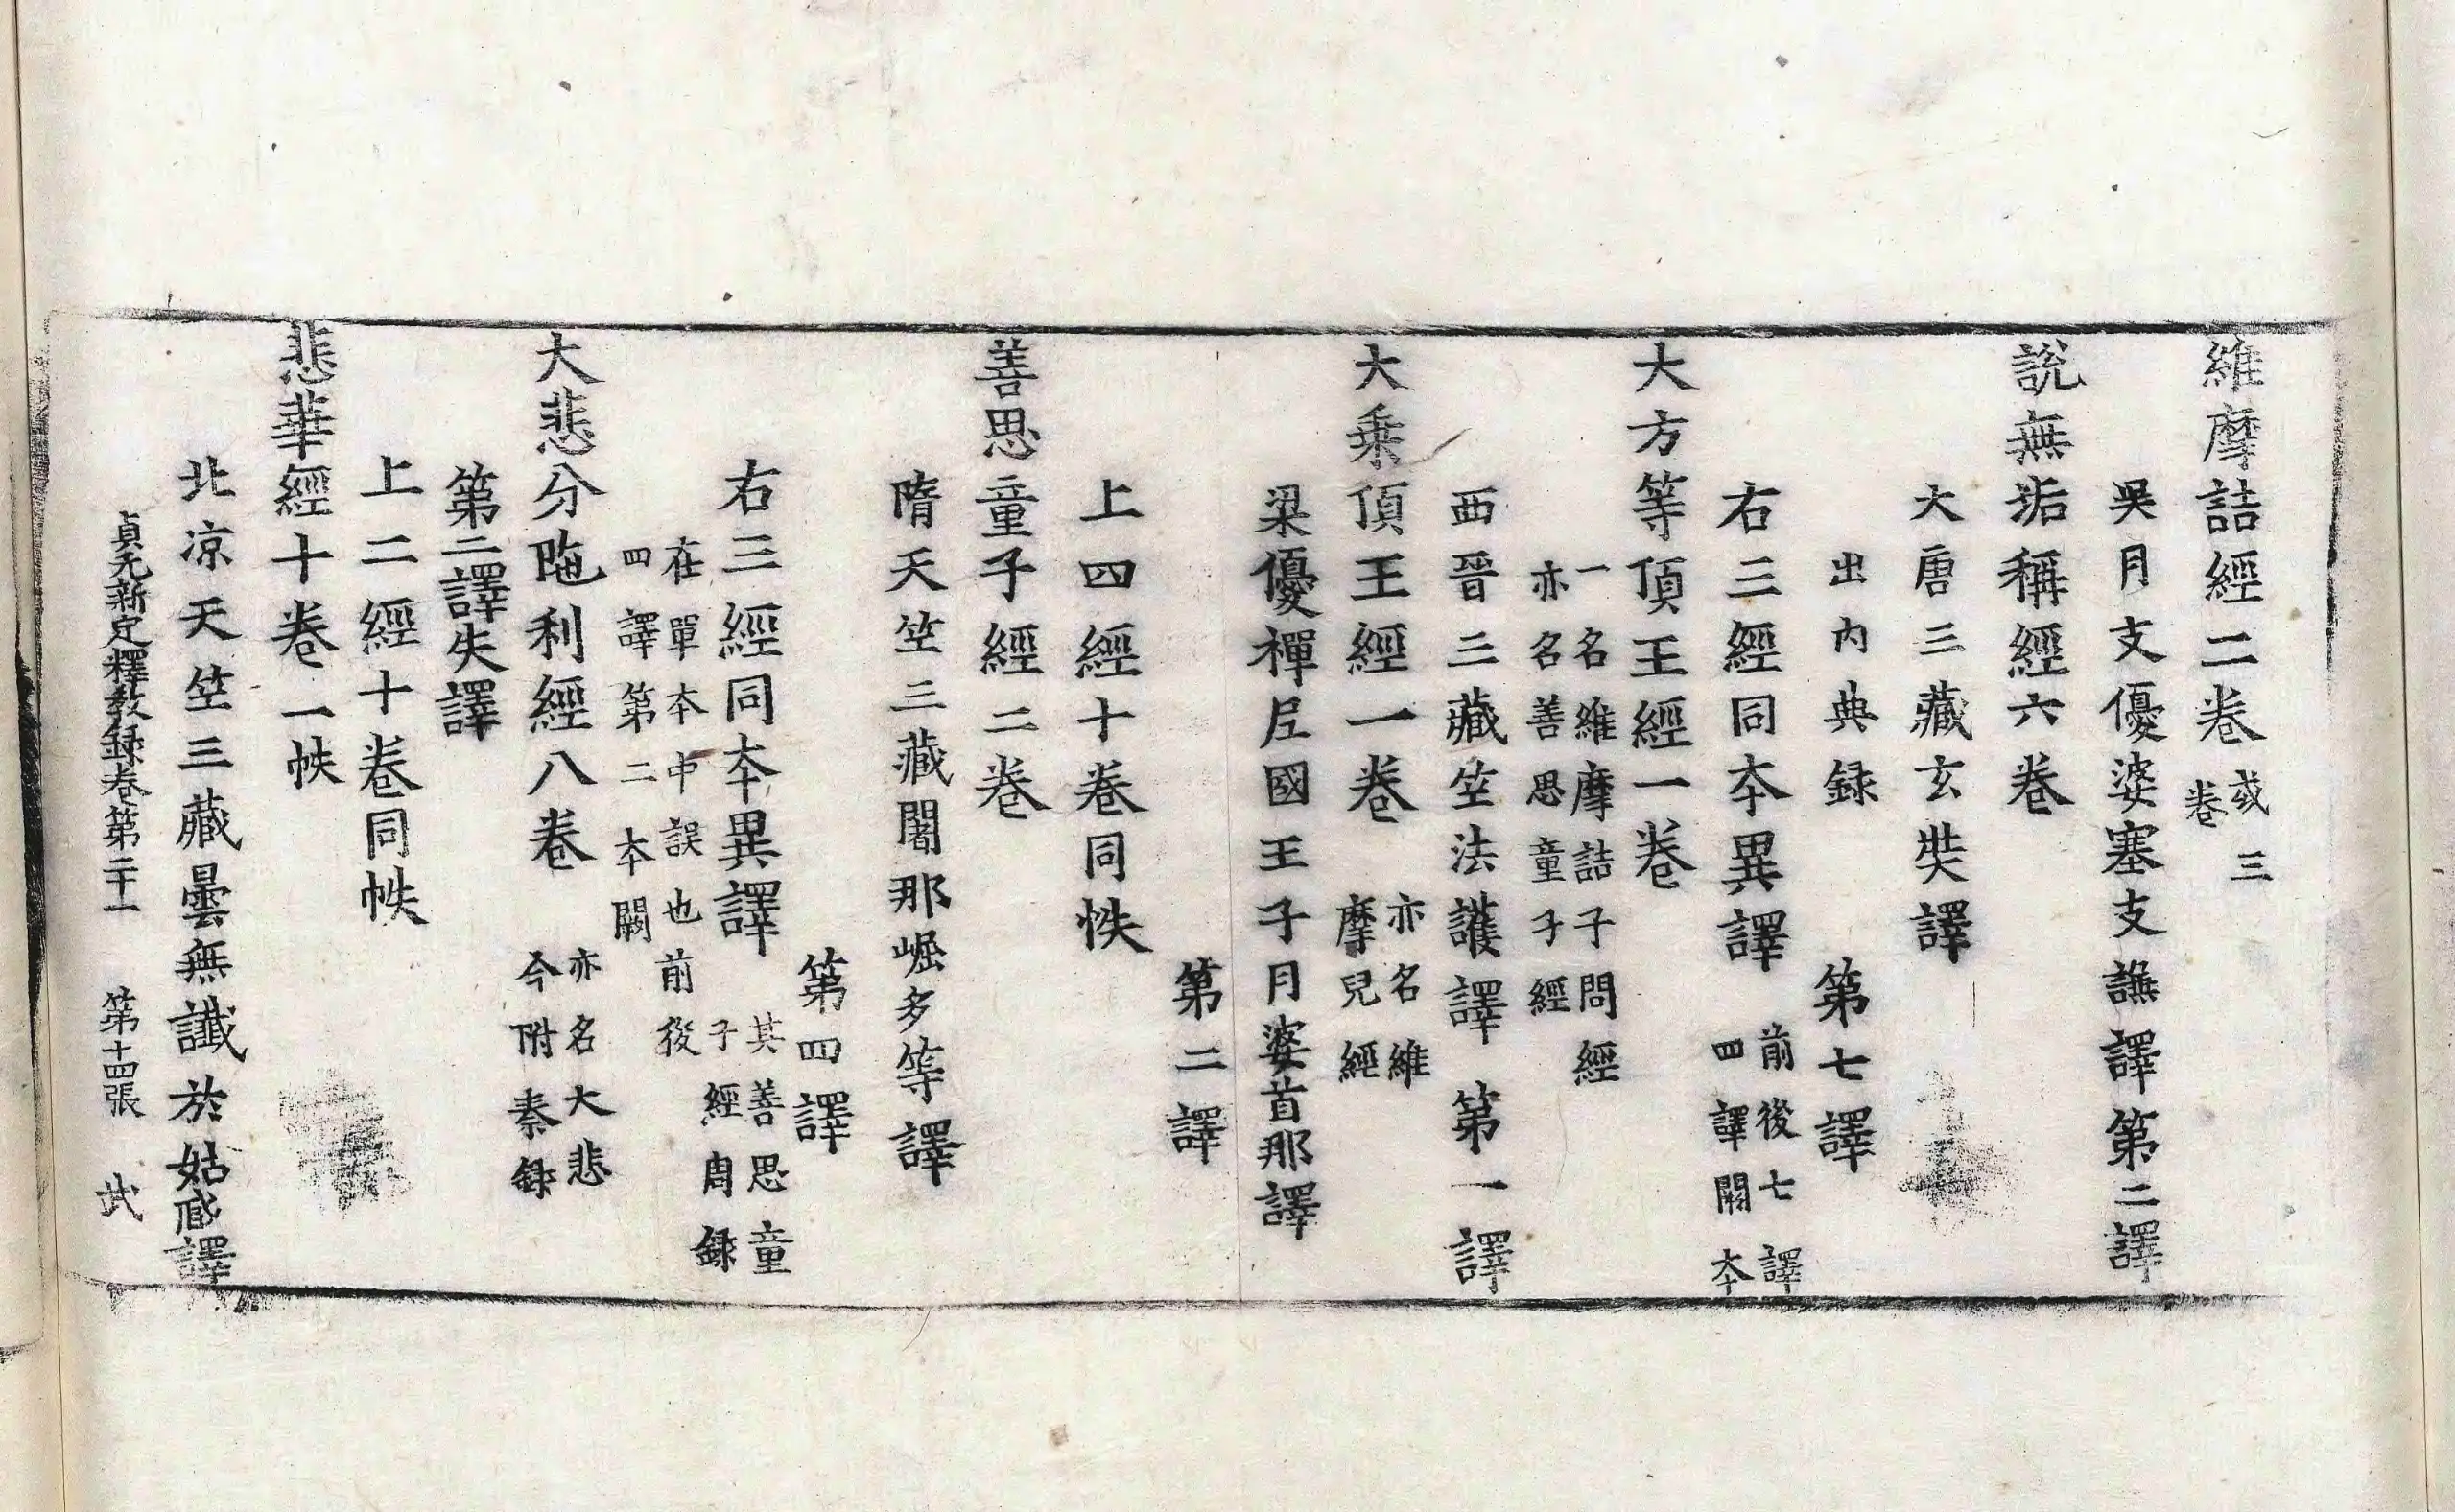 維摩詰經二卷 或三
卷
吳月支優婆塞支謙譯第二譯
說無垢稱經六卷
大唐三藏玄奘譯
出內典録 第七譯
右三經同夲異譯 前後七譯
四譯闕夲
大方等頂王經一卷
一名維摩詰子問經
亦名善思童子經
西晉三藏竺法護譯 第一譯
大乗頂王經一卷 亦名維
摩兒經
梁優禪尼國王子月婆首那譯
第二譯
上四經十卷同帙
善思童子經二卷
隋天竺三藏闍那崛多等譯
第四譯
右三經同夲異譯 其善思童
子經周録
在單夲中誤也前後
四譯第二夲闕
大悲分陁利經八卷 亦名大悲
今附秦録
第二譯失譯
上二經十卷同帙
悲華經十卷一帙
北凉天竺三藏曇無讖於姑臧譯
貞元新定釋教録卷第二十一 第十四張 武